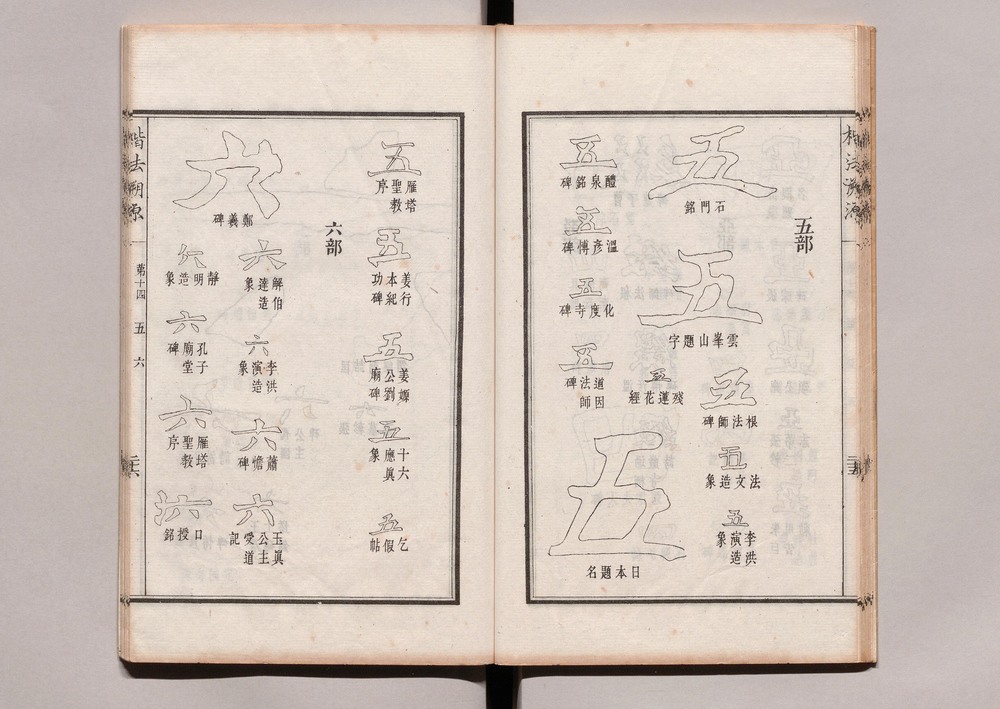 楷法溯源
五部
五
石門銘
五
雲峯山題字
五
根法師碑
五
法文造象
五
李洪演造象
五
殘蓮花經
五
醴泉銘碑
五
溫彥博碑
五
化度寺碑
五
道因法師碑
五
日本題名
五
雁塔聖教序
五
姜行本紀功碑
五
姜嫄公劉廟碑
五
十六應眞象
五
乞假帖
六部
六
鄭羲碑
六
解伯達造象
六
李洪演造象
六
蕭憺碑
六
玉眞公主受道記
六
靜明造象
六
孔子廟堂碑
六
雁塔聖教序
六
口授銘
楷法溯源
第十四
五
六